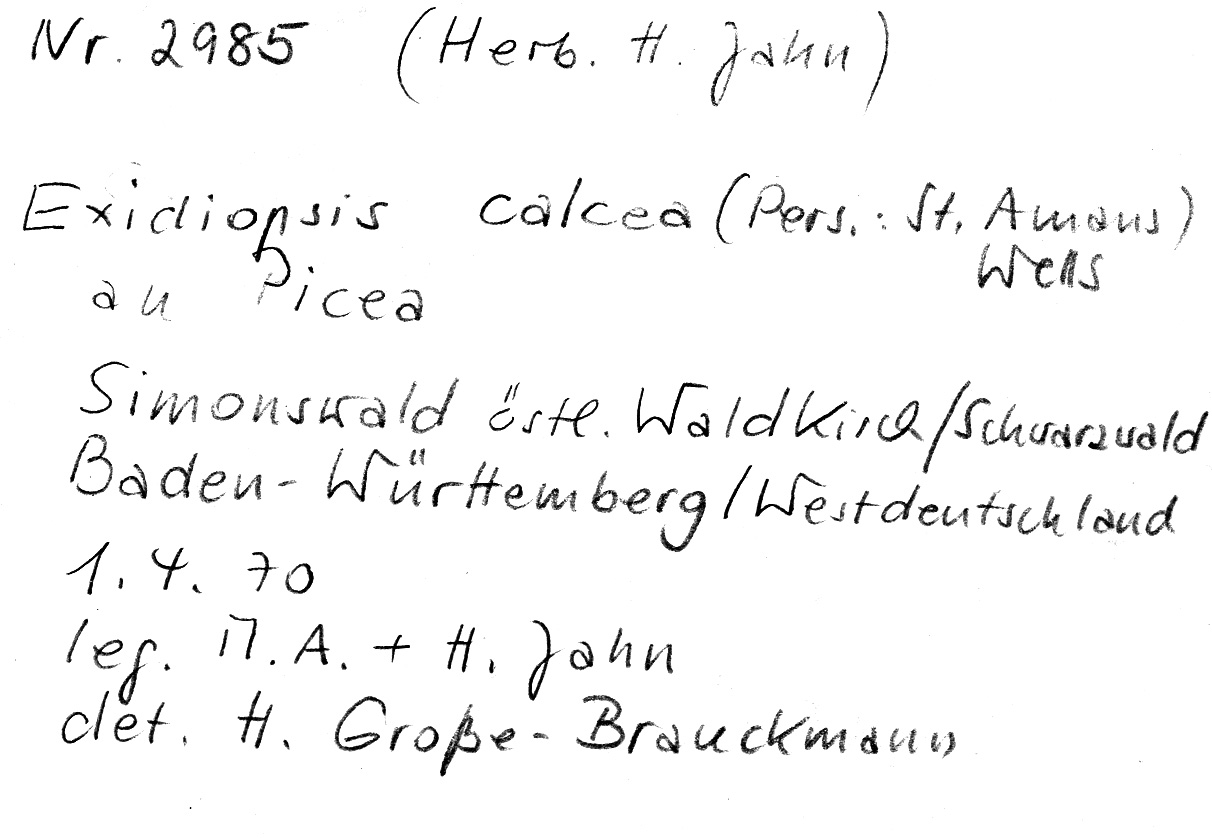 Nr. 2985 (Herb. H. Jahn)
Exidiopsis calcea (Pers.: St. Amans)
Wells
an Picea
Simonswald östl. Waldkirch/Schwarzwald
Baden-Württemberg/Westdeutschland
1. 4. 70
leg. M. A. + H. Jahn
det. H. Große-Brauckmann